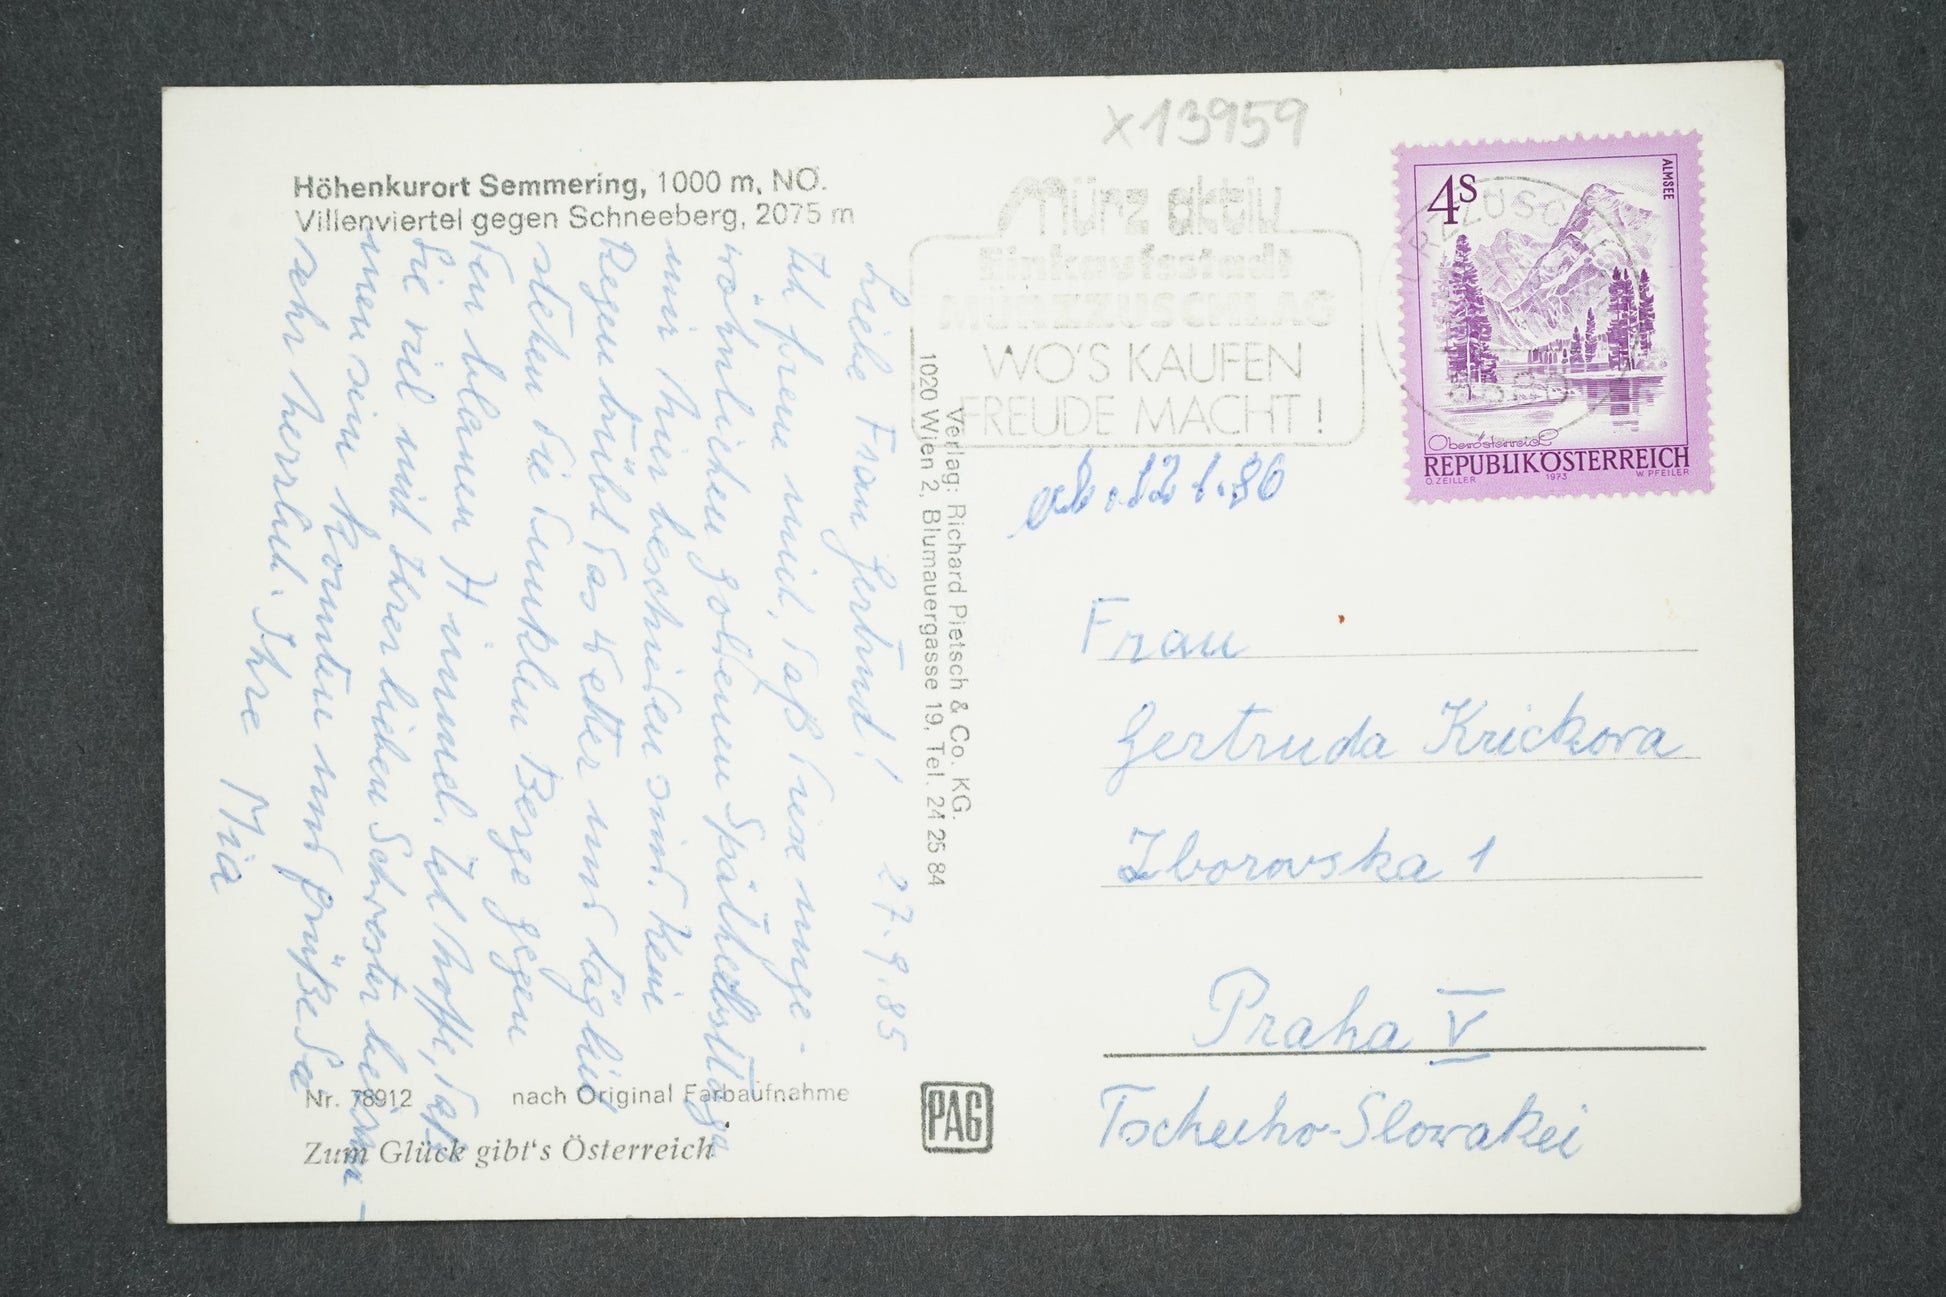 x13959
Höhenkurort Semmering, 1000 m, NÖ.
Villenviertel gegen Schneeberg, 2075 m
Liebe Frau Gertrud! 27.9.85
Ich freue mich, daß diese unge-
wöhnlichen goldenen Spätherbsttage
mir hier beschieden sind. Kein
Regen trübt das Wetter und täglich
stehen die dunklen Berge gegen
den blauen Himmel. Ich hoffe, daß
Sie viel mit Ihrer lieben Schwester beisam-
men sein konnten und grüße Sie
sehr herzlich. Ihre Mia
Nr. 78912 nach Original Farbaufnahme
Zum Glück gibt's Österreich
Verlag: Richard Pietsch & Co. KG.
1020 Wien 2, Blumauergasse 19, Tel. 24 25 84
PAG
Mürz aktiv
Einkaufsstadt
MÜRZZUSCHLAG
WO'S KAUFEN
FREUDE MACHT!
4S
ALMSEE
Oberösterreich
REPUBLIK ÖSTERREICH
O. ZEILLER 1973 W. PFEILER
12 1.86
Frau
Gertruda Krickova
Zborovska 1
Praha V
Tschecho-Slowakei